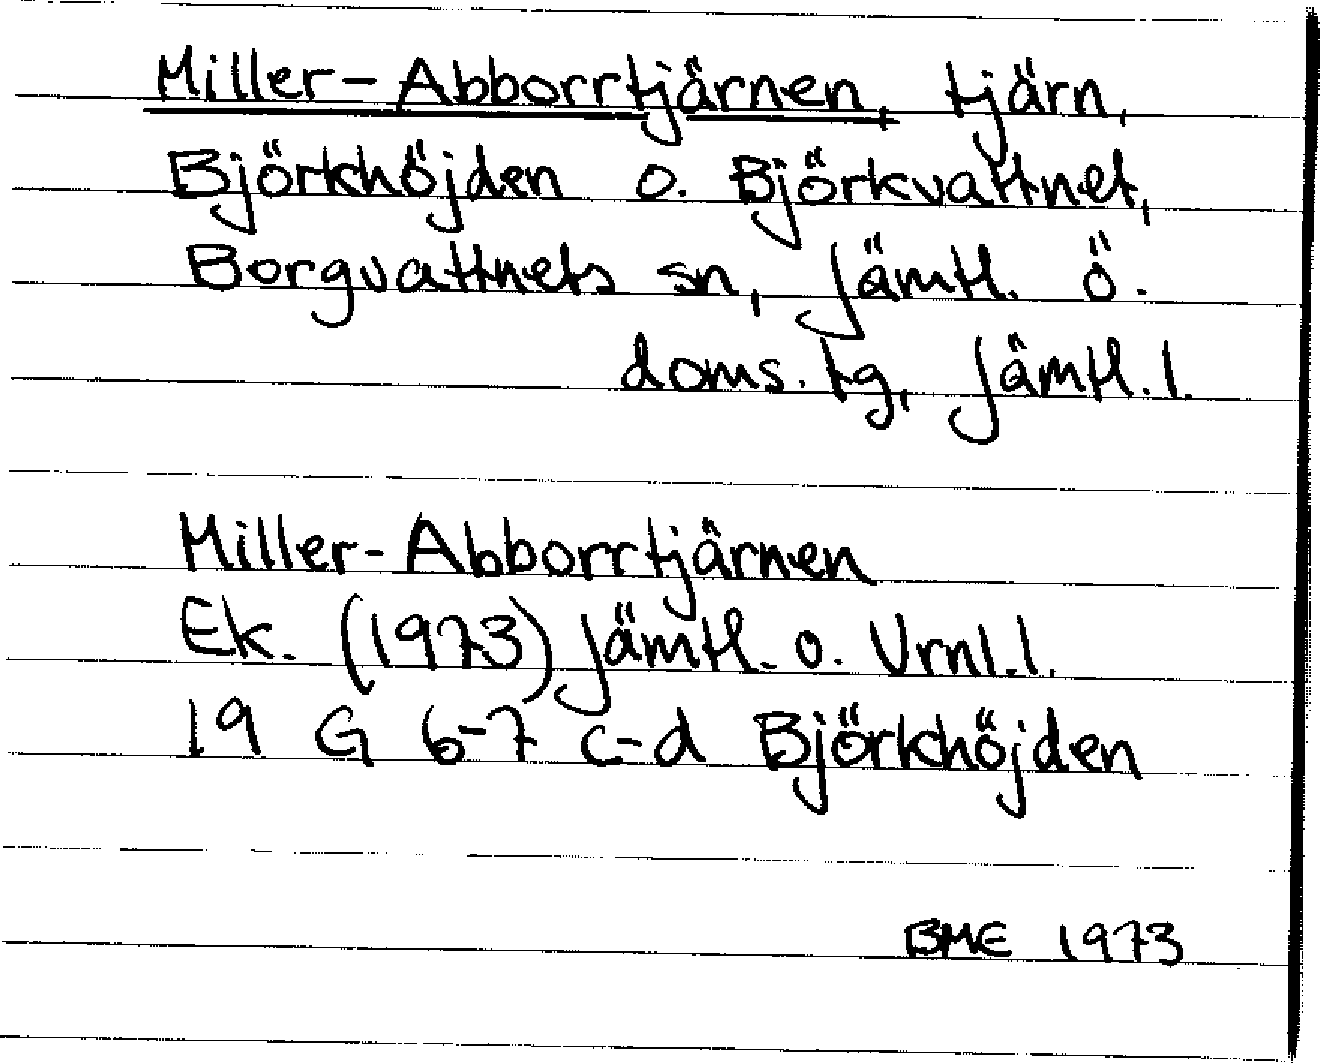 Miller-Abborrtjärnen, tjärn,
Björkhöjden o. Björkvattnet,
Borgvattnets sn, Jämtl. ö.
doms. tg, Jämtl. l.
Miller-Abborrtjärnen
Ek. (1973) Jämtl. o. Vrnl. l.
19 G 6-7 c-d Björkhöjden
BME 1973